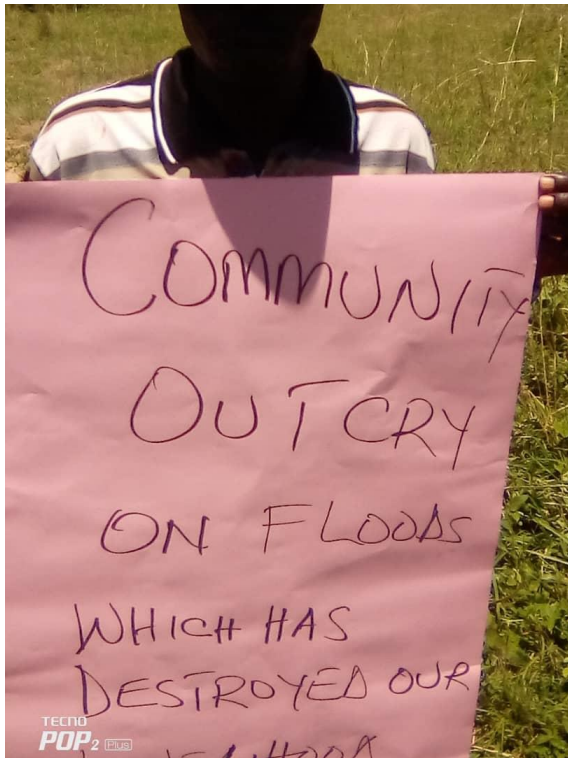 COMMUNITY
OUTCRY
ON FLOODS
WHICH HAS
DESTROYED OUR
TECNO
POP2 Plus